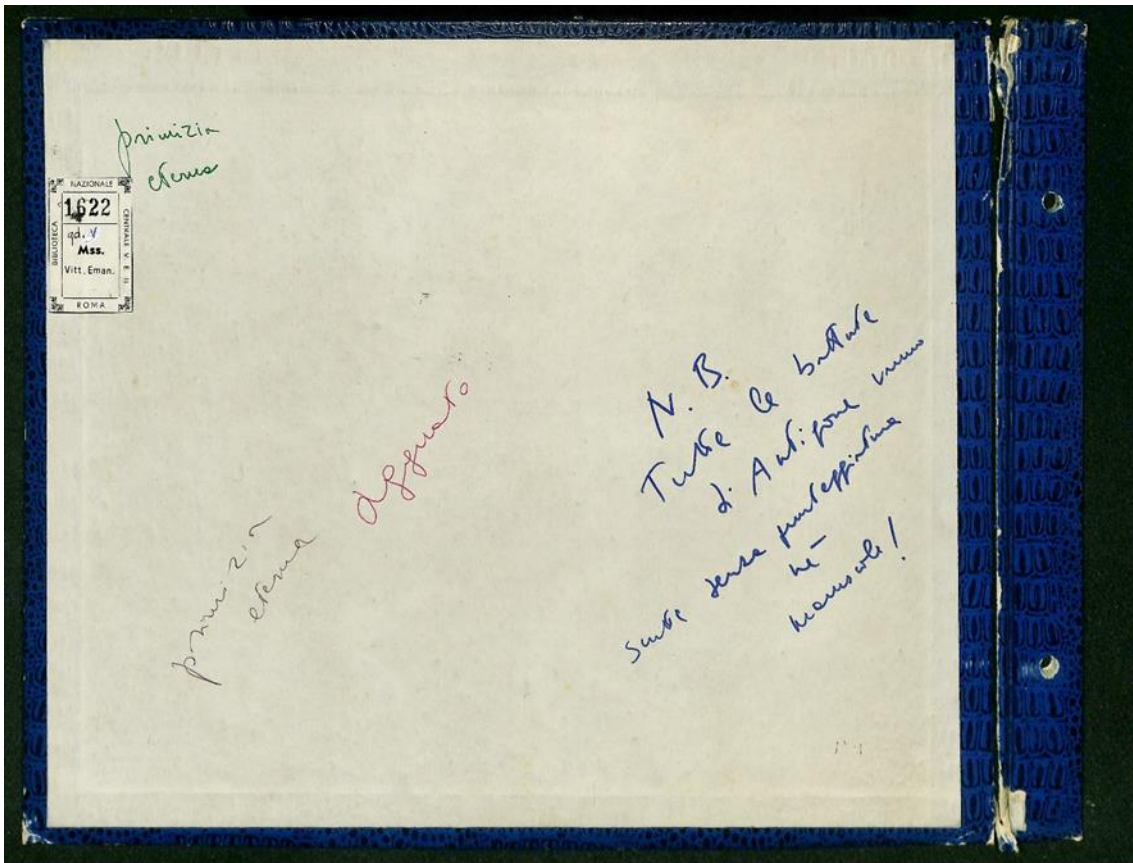 primizia
eterna
NAZIONALE
BIBLIOTECA
CENTRALE V. E. II
1622
qd. V
Mss.
Vitt. Eman.
ROMA
primizia
eterna
agguato
N. B.
Tutte le battute
di Antigone vanno
scritte senza punteggiatura
né
maiuscole!